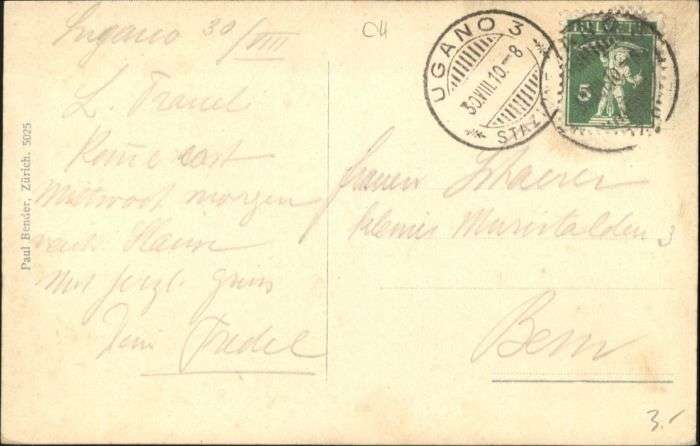 Lugano 30/VIII
CH
LUGANO 3
30.VIII.10.-8
STAZ
5
L.
Komme erst
Mittwoch morgen
nach Hause
Mit herzl. Gruss
Dein Fredel
Schaerer
kleines Muristalden 3
Bern
Paul Bender, Zürich. 5025
3.-